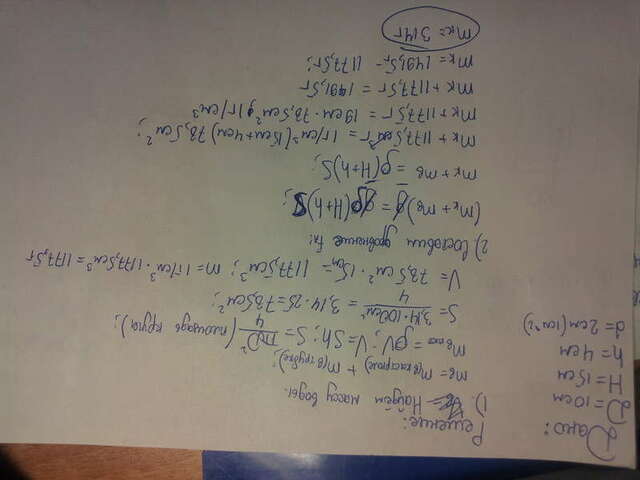 Дано:
D = 10см
H = 15см
h = 4см
d = 2см (1см^2)
Решение:
1). Найдём массу воды.
mв = m(в кастрюле) + m(в трубке);
mв = ρV; V = Sh; S = πD²/4 (площадь круга);
S = 3,14·100см²/4 = 3,14·25 = 78,5см²;
V = 78,5см² · 15см = 1177,5см³; m = 1г/см³ · 1177,5см³ = 1177,5г
2) Составим уравнение
(mк + mв)g = gρ(H+h)S;
mк + mв = ρ(H+h)S;
mк + 1177,5г = 1г/см³(15см+4см)78,5см²;
mк + 1177,5г = 19см · 78,5см² · 1г/см³
mк + 1177,5г = 1491,5г
mк = 1491,5г - 1177,5г;
mк = 314г